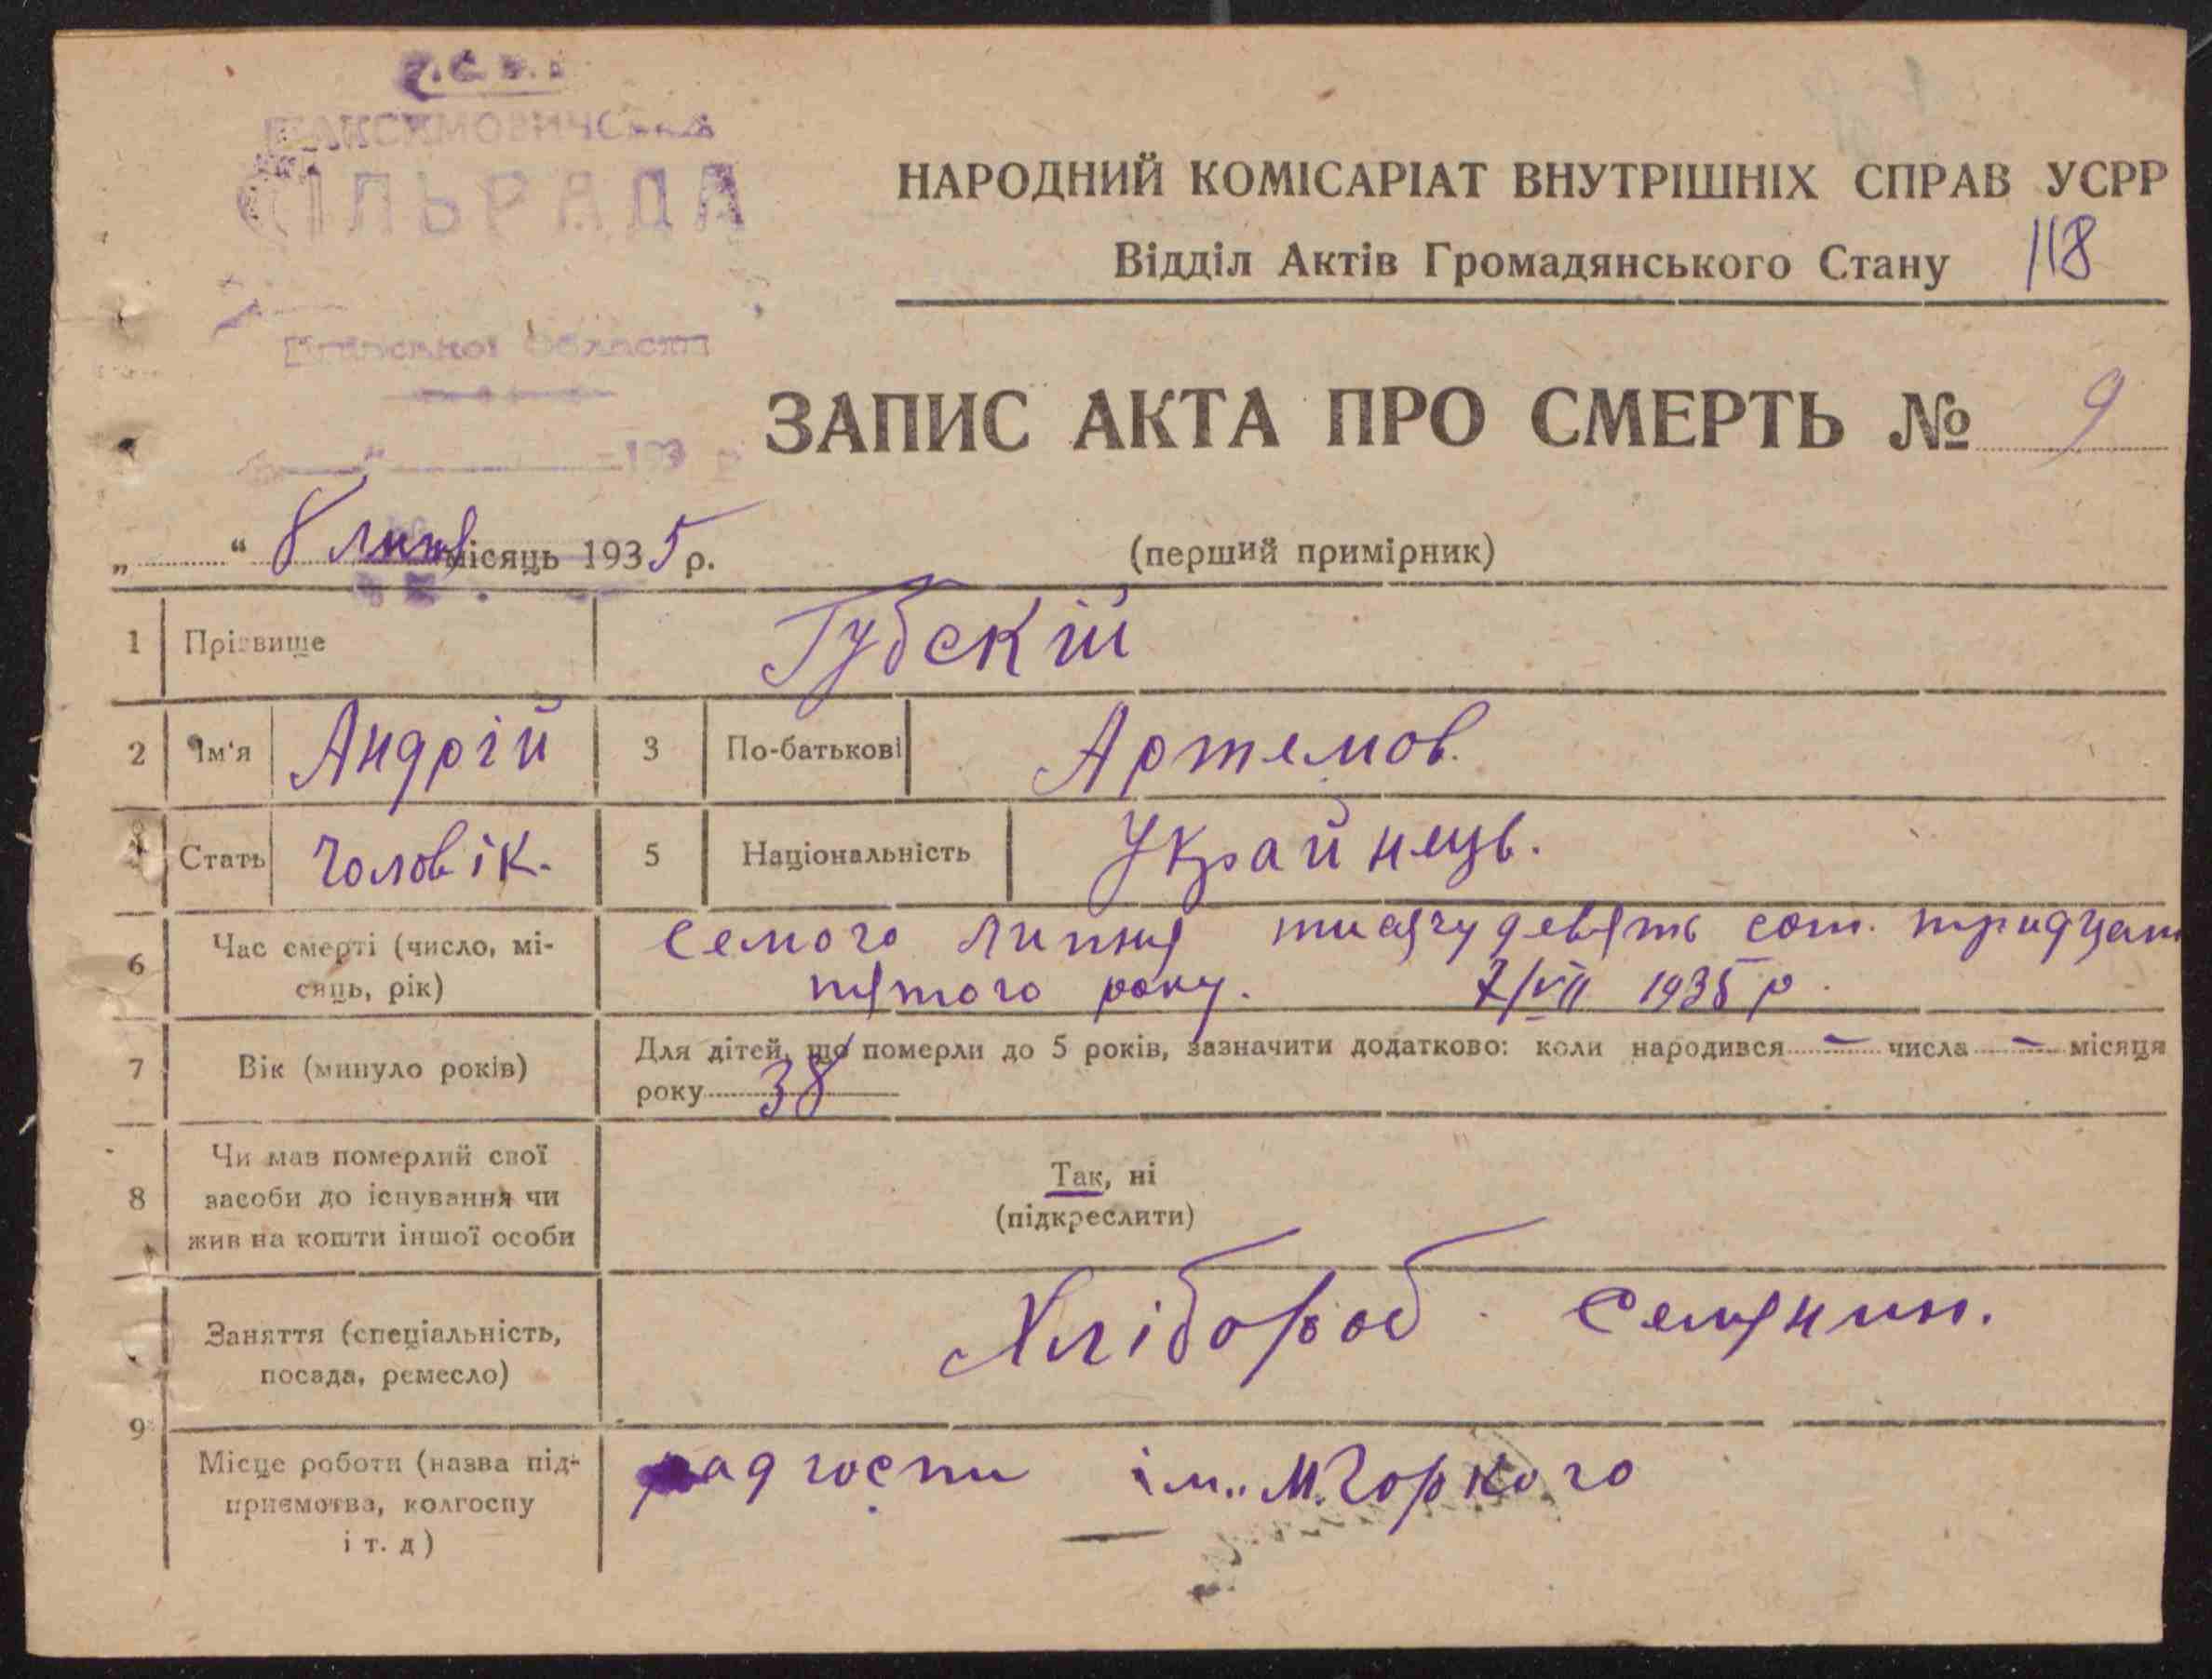 У.С.Р.Р.
МАКСИМОВИЧСЬКА
СІЛЬРАДА
Київської Області
193 р
НАРОДНИЙ КОМІСАРІАТ ВНУТРІШНІХ СПРАВ УСРР
Відділ Актів Громадянського Стану 118
ЗАПИС АКТА ПРО СМЕРТЬ № 9
„ “ 8 липня місяць 1935 р.
(перший примірник)
1 Прізвище Губскій
2 Ім'я Андрій 3 По-батькові Артемов.
4 Стать Чоловік. 5 Національність Украйнець.
6 Час смерті (число, мі-
сяць, рік)
семого липня тисячу девять сот. тридцат
пятого року. 7/VII 1935 р.
7 Вік (минуло років)
Для дітей, що померли до 5 років, зазначити додатково: коли народився – числа – місяця
року 38
8 Чи мав померлий свої
засоби до існування чи
жив на кошти іншої особи
Так, ні
(підкреслити)
9 Заняття (спеціальність,
посада, ремесло)
Хлібороб селянин.
Місце роботи (назва під-
приємства, колгоспу
і т. д)
радгоспи ім.. М.Горкого